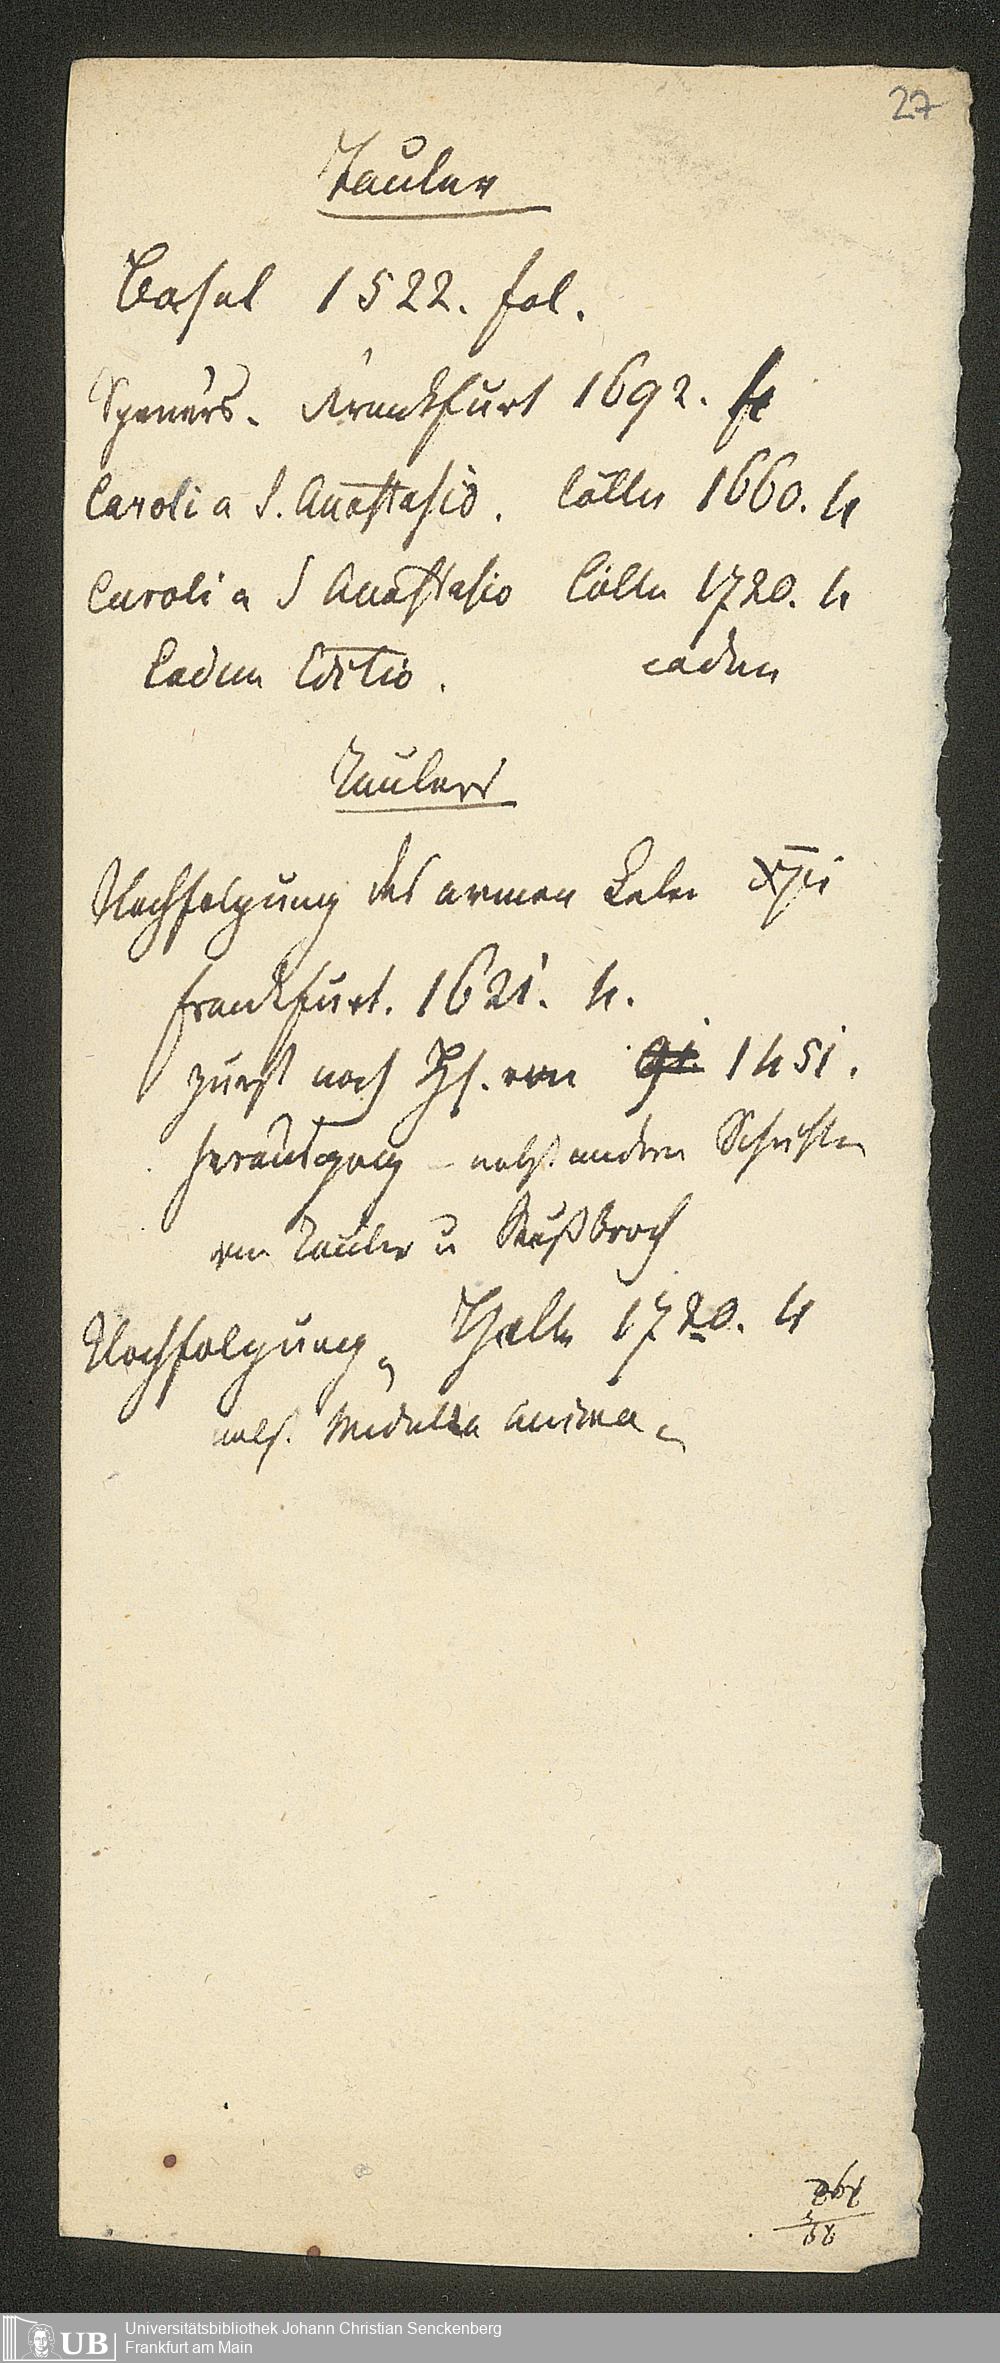 27
Tauler
Basel 1522. fol.
Speners. Frankfurt 1692. 4
Caroli a S. Anastasio. Cölln 1660. 4
Caroli a S Anastasio Cölln 1720. 4
Eadem Editio. eadem
Taulers
Nachfolgung des armen Leben Xri
Frankfurt. 1621. 4.
zuerst nach Hs. von 1451.
herausgeg nebst andern Schriften
von Tauler u Rußbroch
Nachfolgung Halle 1720. 4
nebst. Medulla animae
UB Universitätsbibliothek Johann Christian Senckenberg
Frankfurt am Main